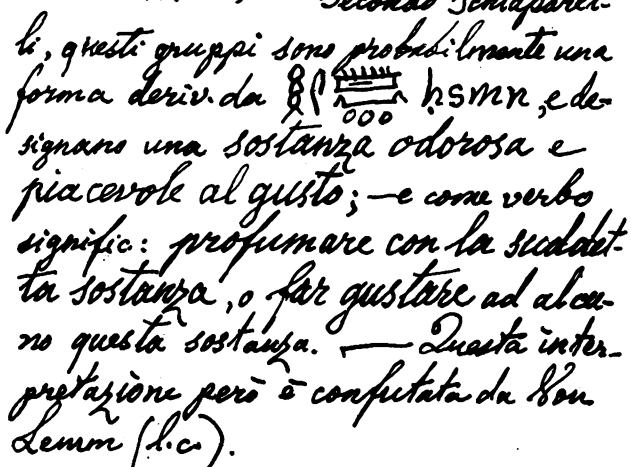 Secondo Schiaparel-
li, questi gruppi sono probabilmente una
forma deriv. da 𓎛𓋴𓏠𓈖 ḥsmn, e de-
signano una sostanza odorosa e
piacevole al gusto; — e come verbo
signific: profumare con la suddet-
ta sostanza, o far gustare ad alcu-
no questa sostanza. — Questa inter-
pretazione però è confutata da Von
Lemm (l.c.).